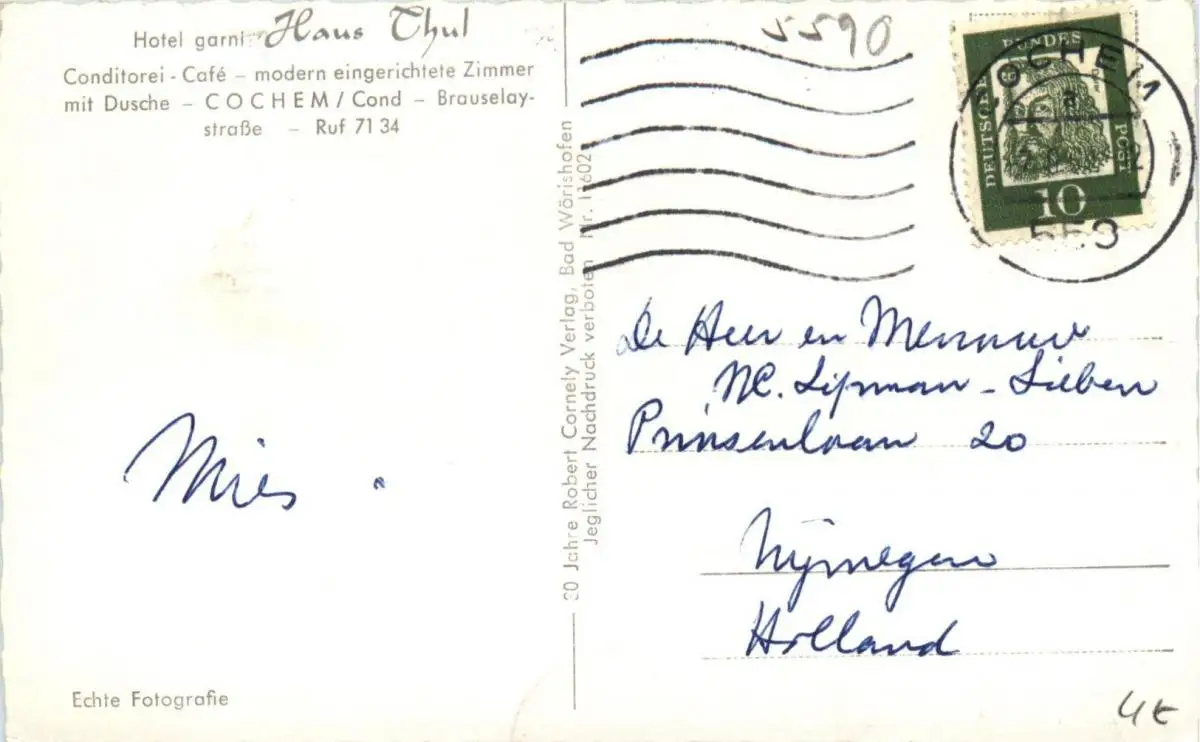 Hotel garni Haus Thul
Conditorei - Café – modern eingerichtete Zimmer
mit Dusche – COCHEM / Cond – Brauselay-
straße – Ruf 71 34
Mies
Echte Fotografie
30 Jahre Robert Cornely Verlag, Bad Wörishofen
Jeglicher Nachdruck verboten Nr. 11602
5590
DEUTSCHE BUNDES POST
10
COCHEM
a
De Heer en Mevrouw
Lipman - Lieben
Prinsenlaan 20
Nijmegen
Holland
4€